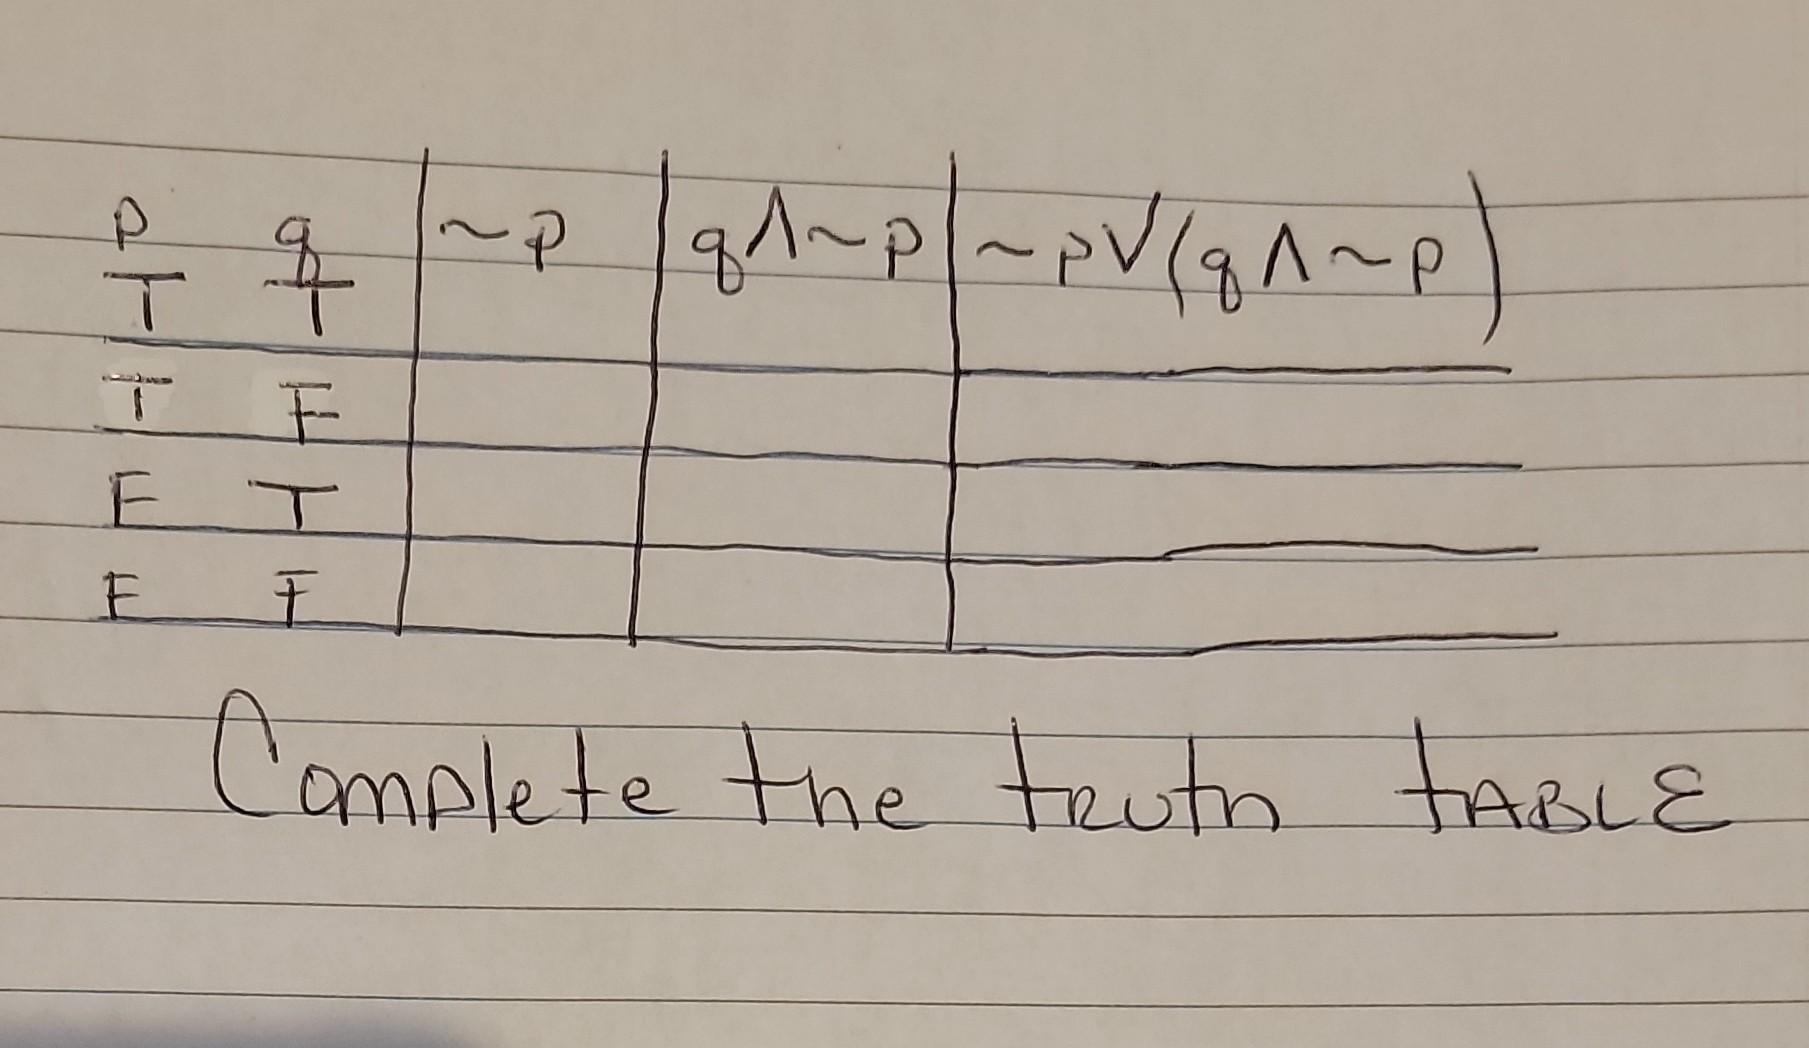 p q ~p q∧~p ~p∨(q∧~p)
T T
T F
F T
F F
Complete the truth tABLE